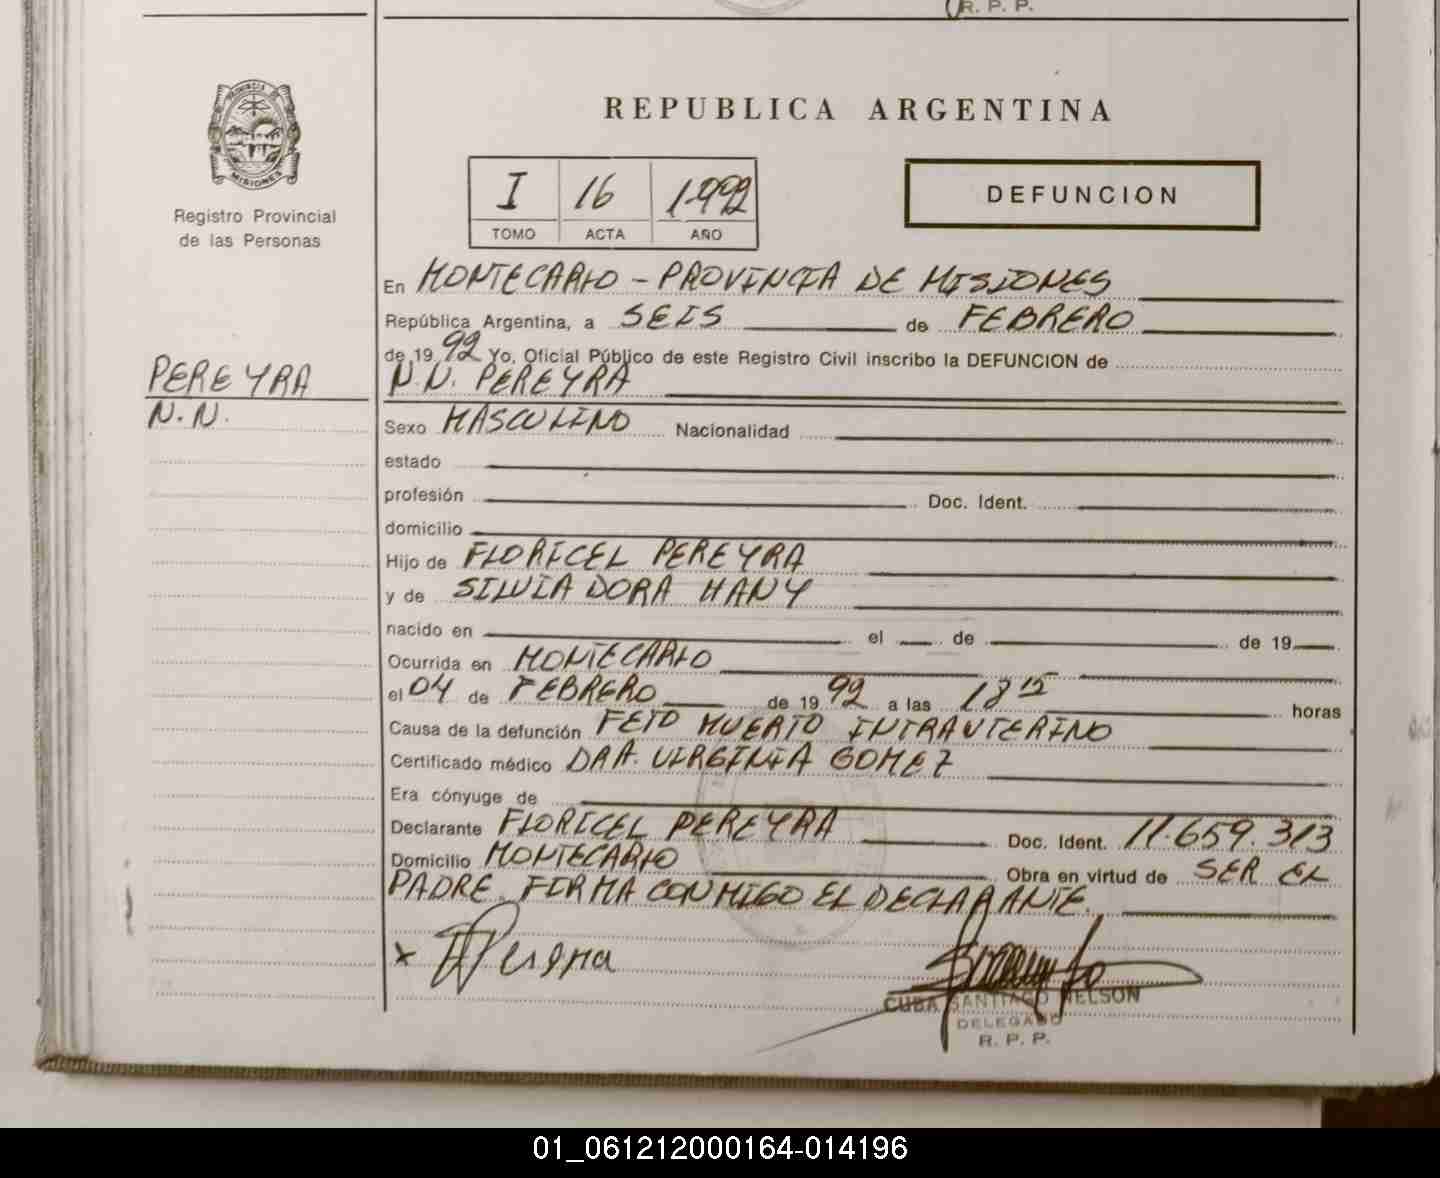 R. P. P.
PROVINCIA DE
MISIONES
Registro Provincial
de las Personas
PEREYRA
N.N.
REPUBLICA ARGENTINA
I 16 1992
TOMO ACTA AÑO
DEFUNCION
En MONTECARLO - PROVINCIA DE MISIONES
República Argentina, a SEIS de FEBRERO
de 19 92 Yo, Oficial Público de este Registro Civil inscribo la DEFUNCION de
N.N. PEREYRA
Sexo MASCULINO Nacionalidad
estado
profesión Doc. Ident.
domicilio
Hijo de FLORICEL PEREYRA
y de SILVIA DORA HANY
nacido en el de de 19
Ocurrida en MONTECARLO
el 04 de FEBRERO de 19 92 a las 18 15 horas
Causa de la defunción FETO MUERTO INTRAUTERINO
Certificado médico DRA. VIRGINIA GOMEZ
Era cónyuge de
Declarante FLORICEL PEREYRA Doc. Ident. 11.659.313
Domicilio MONTECARLO Obra en virtud de SER EL
PADRE. FIRMA CONMIGO EL DECLARANTE.
x
CUBA SANTIAGO NELSON
DELEGADO
R. P. P.
01_061212000164-014196